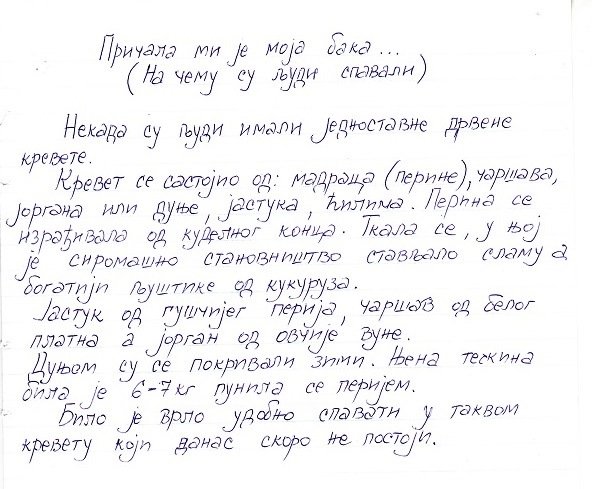 Причала ми је моја бака...
(На чему су људи спавали)
Некада су људи имали једноставне дрвене
кревете.
Кревет се састојио од: мадраца (перине), чаршава,
јоргана или дуње, јастука, ћилима. Перина се
израђивала од куделног конца. Ткала се, у њој
је сиромашно становништво стављало сламу а
богатији љуштике од кукуруза.
Јастук од гушчијег перија, чаршав од белог
платна а јорган од овчије вуне.
Дуњом су се покривали зими. Њена тескина
била је 6-7кг пунила се перијем.
Било је врло удобно спавати у таквом
кревету који данас скоро не постоји.